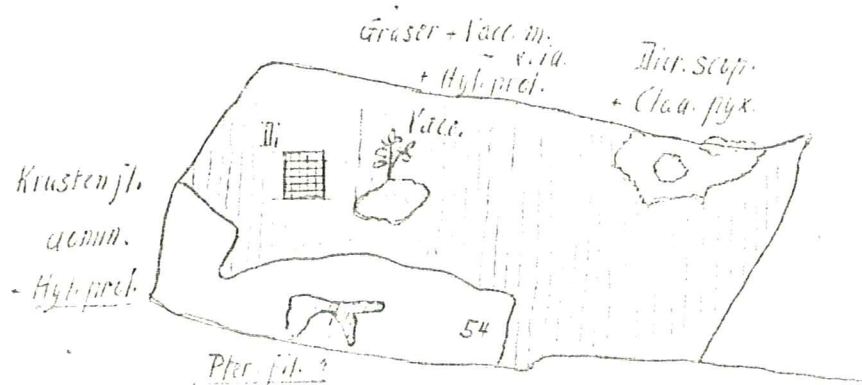 Gräser + Vacc. m.
- v. id.
+ Hyl. prol.
Dicr. scop.
+ Clad. pyx.
Vacc.
Krustenfl.
- Hyl. prol.
54
Pter. fil. ?